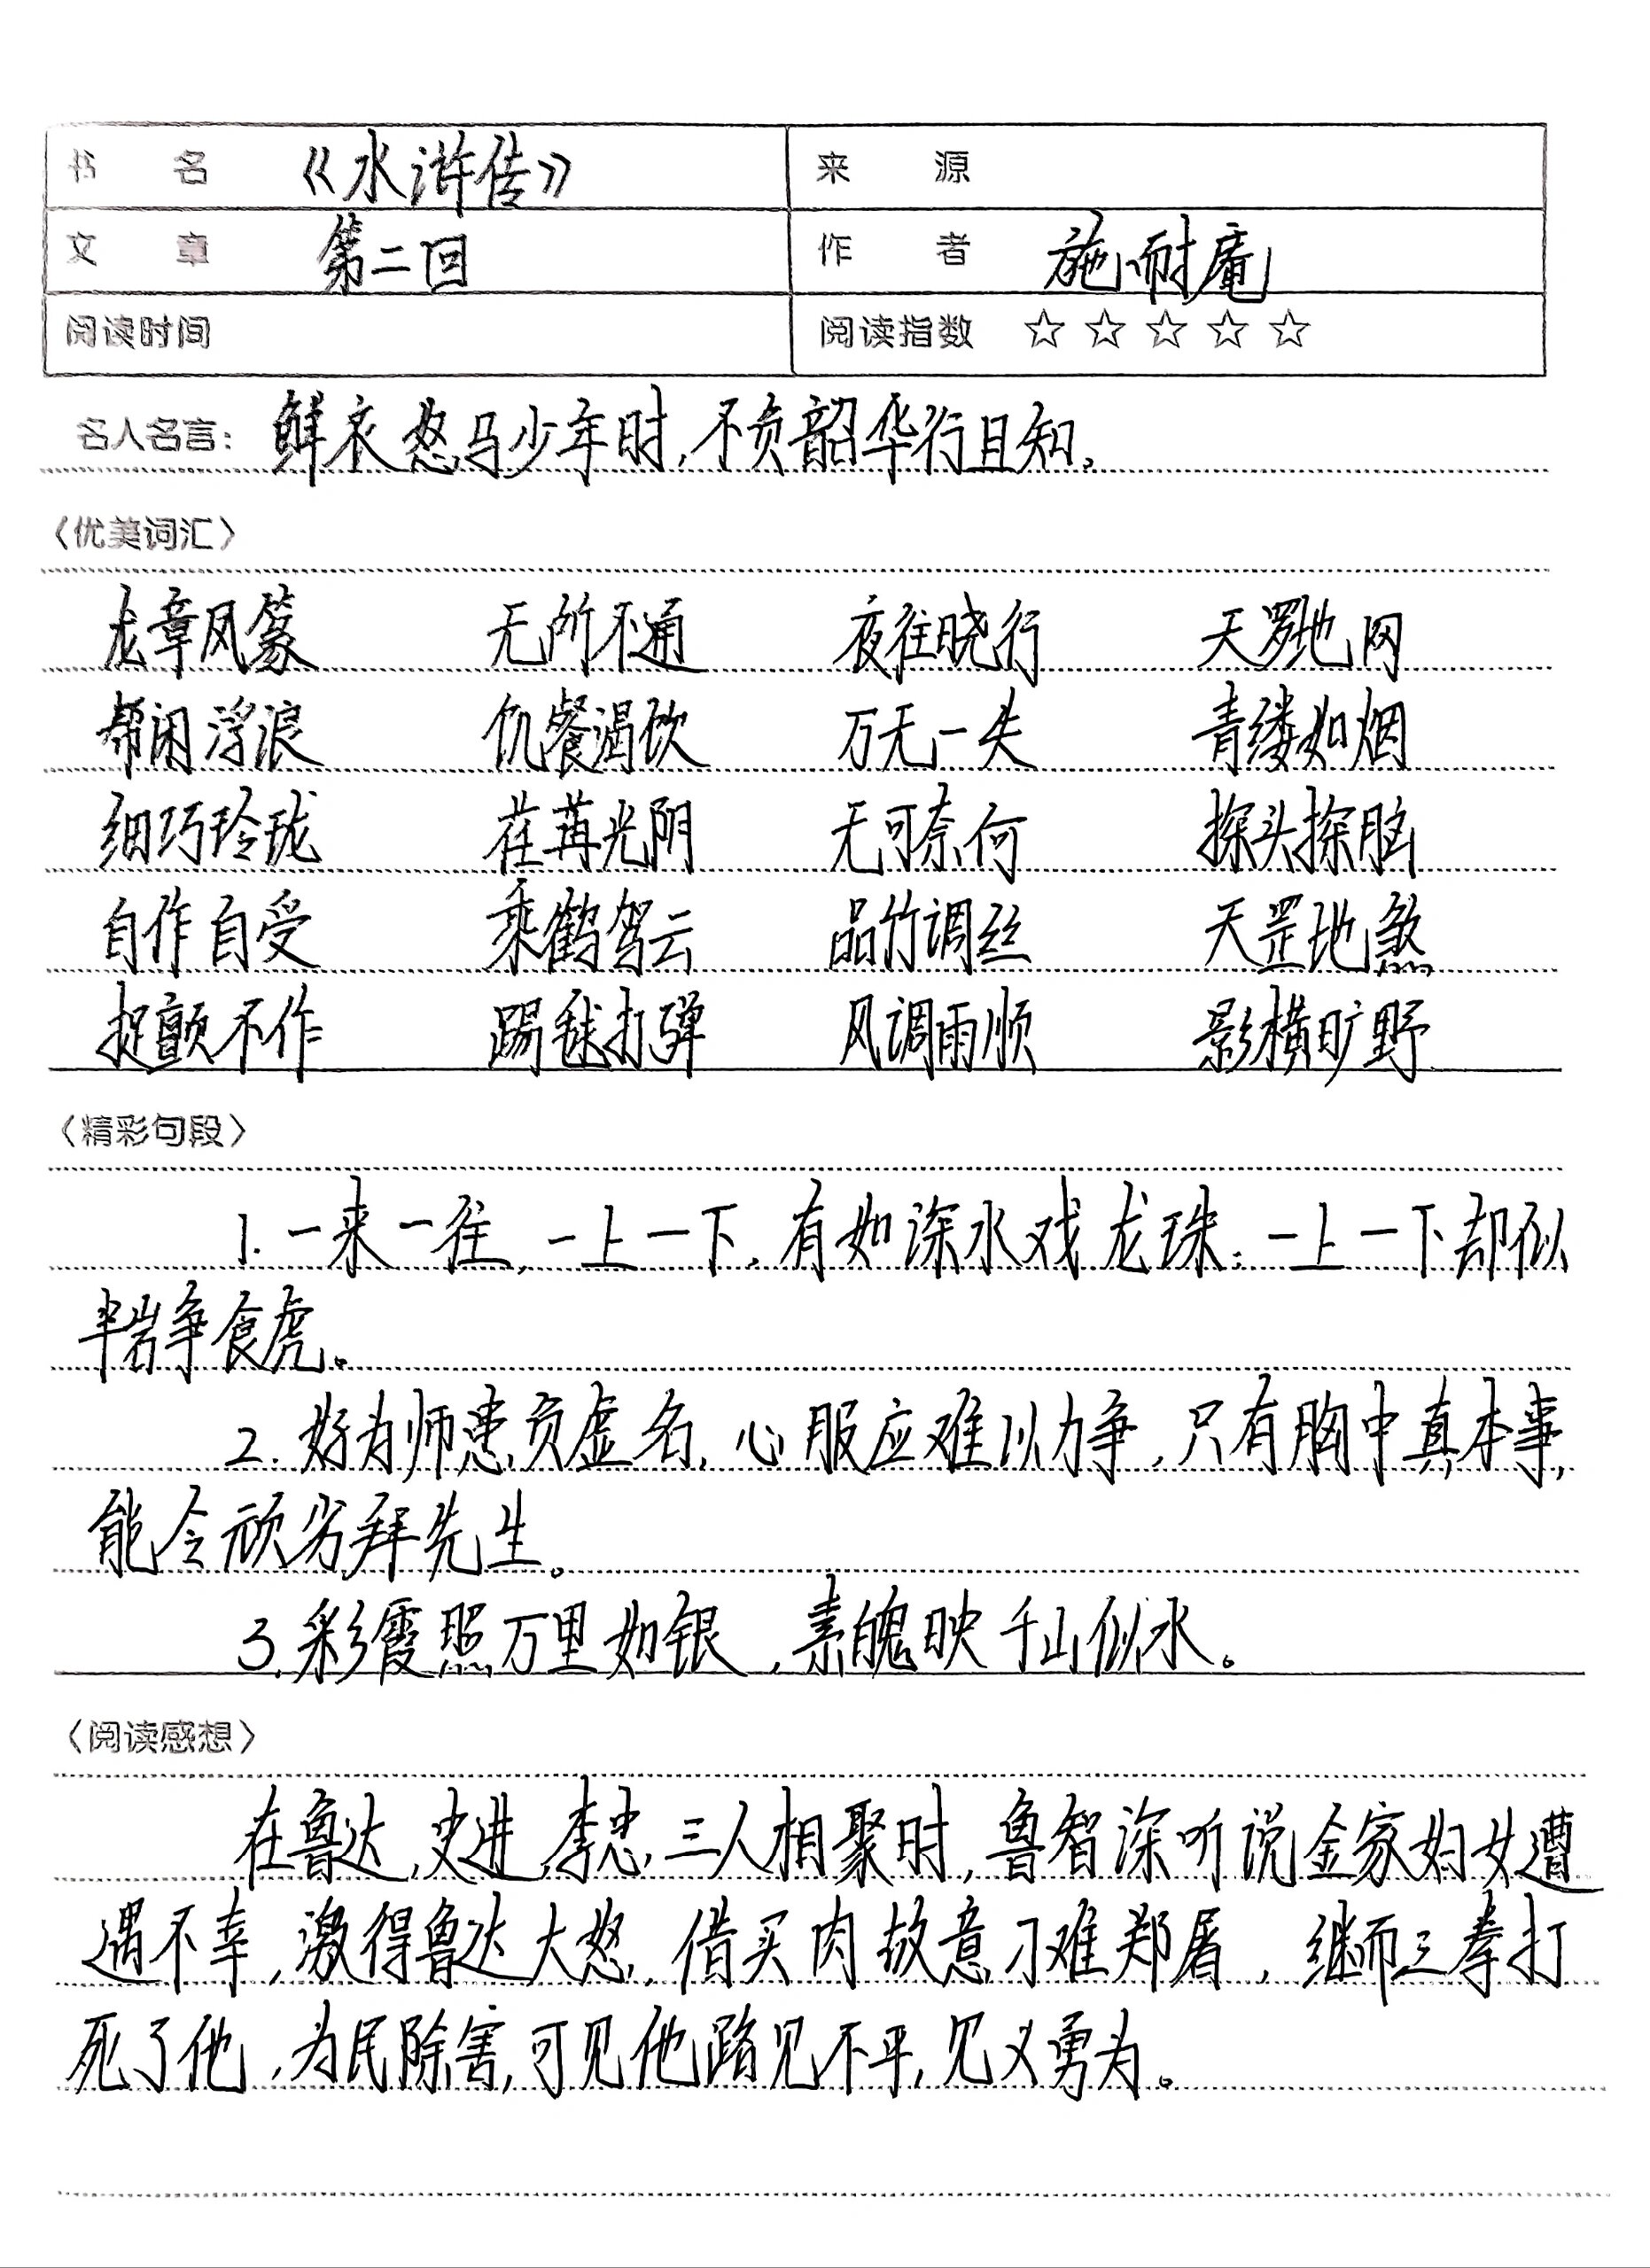 书 名 《水浒传》 来 源
文 章 第二回 作 者 施耐庵
阅读时间 阅读指数 ☆ ☆ ☆ ☆ ☆
名人名言: 鲜衣怒马少年时,不负韶华行且知。
〈优美词汇〉
龙章凤篆 无所不通 夜往晓行 天罗地网
帮闲浮浪 饥餐渴饮 万无一失 青缕如烟
细巧玲珑 荏苒光阴 无可奈何 探头探脑
自作自受 乘鹤驾云 品竹调丝 天罡地煞
捉颤不作 踢毬打弹 风调雨顺 影横旷野
〈精彩句段〉
1. 一来一往,一上一下,有如深水戏龙珠;一上一下却似
半岩争食虎。
2. 好为师患负虚名,心服应难以力争,只有胸中真本事,
能令顽劣拜先生。
3. 彩霞照万里如银,素魄映千山似水。
〈阅读感想〉
在鲁达,史进,李忠,三人相聚时,鲁智深听说金家妇女遭
遇不幸,激得鲁达大怒,借买肉故意刁难郑屠,继而三拳打
死了他,为民除害,可见他路见不平,见义勇为。